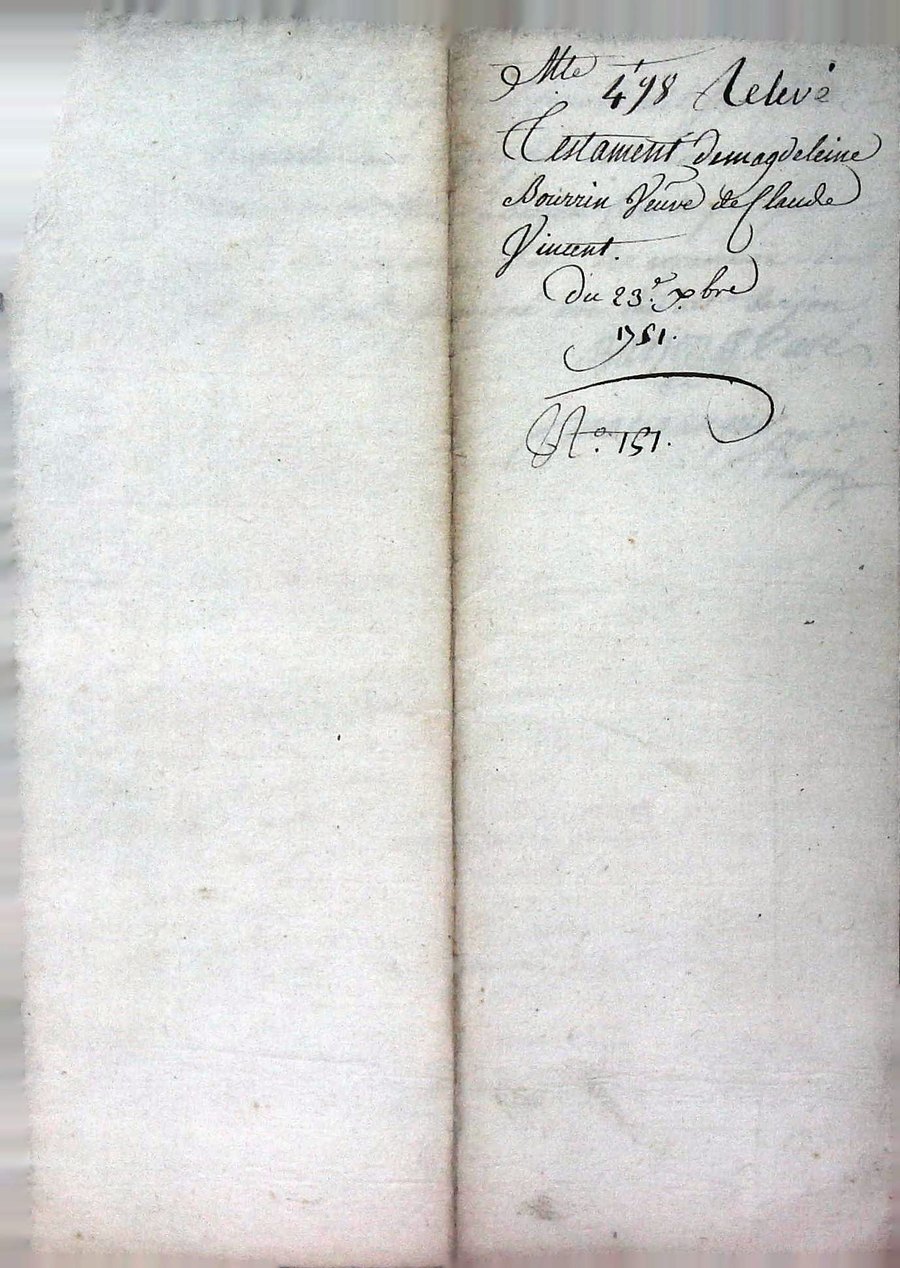 498 Relevé
Testament demagdeleine
Bourrin Veuve de Claude
Vincent.
Du 23.e xbre
1751.
N.o 151.